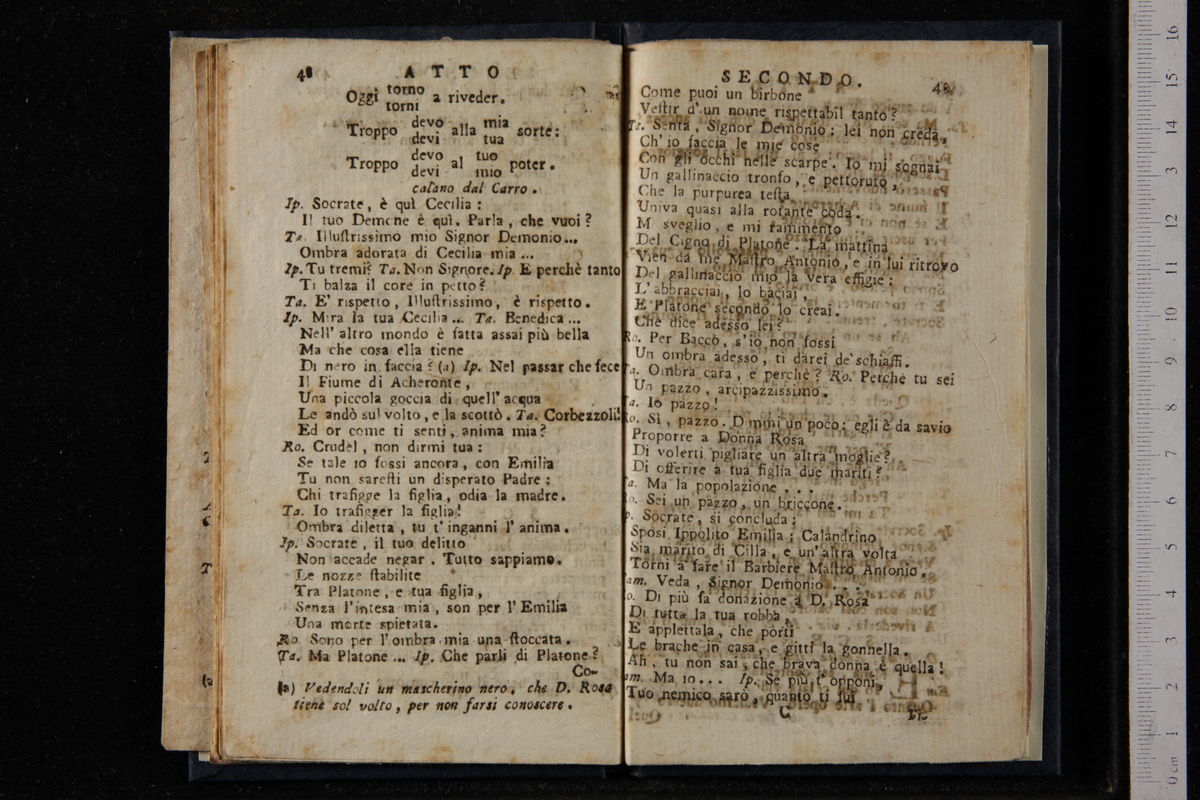 48 ATTO
Oggi torno torni a riveder.
Troppo devo devi alla mia tua sorte:
Troppo devo devi al tuo mio poter.
calano dal Carro.
Ip. Socrate, è quì Cecilia:
Il tuo Demone è quì. Parla, che vuoi?
Ta. Illuſtrissimo mio Signor Demonio...
Ombra adorata di Cecilia mia...
Ip. Tu tremi? Ta. Non Signore. Ip. E perchè tanto
Ti balza il core in petto?
Ta. E' rispetto, Illuſtrissimo, è rispetto.
Ip. Mira la tua Cecilia... Ta. Benedica...
Nell' altro mondo è fatta assai più bella
Ma che cosa ella tiene
Di nero in faccia? (a) Ip. Nel passar che fece
Il Fiume di Acheronte,
Una piccola goccia di quell' acqua
Le andò sul volto, e la scottò. Ta. Corbezzoli!
Ed or come ti senti, anima mia?
Ro. Crudel, non dirmi tua:
Se tale io fossi ancora, con Emilia
Tu non sareſti un disperato Padre:
Chi trafigge la figlia, odia la madre.
Ta. Io trafigger la figlia!
Ombra diletta, tu t'inganni l' anima.
Ip. Socrate, il tuo delitto
Non accade negar. Tutto sappiamo.
Le nozze ſtabilite
Tra Platone, e tua figlia,
Senza l'intesa mia, son per l' Emilia
Una morte spietata.
Ro. Sono per l'ombra mia una ſtoccata.
Ta. Ma Platone... Ip. Che parli di Platone?
Co-
(a) Vedendoli un mascherino nero, che D. Rosa
tiene sol volto, per non farsi conoscere.
SECONDO. 49
Come puoi un birbone
Veſtir d' un nome rispettabil tanto?
Ta. Senta, Signor Demonio: lei non creda,
Ch' io faccia le mie cose
Con gli occhi nelle scarpe. Io mi sognai
Un gallinaccio tronfo, e pettoruto,
Che la purpurea teſta
Univa quasi alla rotante coda.
M sveglio, e mi rammento
Del Cigno di Platone. La mattina
Vien da me Maſtro Antonio, e in lui ritrovo
Del gallinaccio mio la vera effigie:
L' abbracciai, lo baciai,
E Platone secondo lo creai.
Che dice adesso lei?
Ro. Per Bacco, s'io non fossi
Un ombra adesso, ti darei de' schiaffi.
Ta. Ombra cara, e perchè? Ro. Perchè tu sei
Un pazzo, arcipazzissimo.
Ta. Io pazzo!
Ro. Sì, pazzo. Dimmi un poco: egli è da savio
Proporre a Donna Rosa
Di volerti pigliare un altra moglie?
Di offerire a tua figlia due mariti?
Ta. Ma la popolazione....
Ro. Sei un pazzo, un briccone.
Ip. Socrate, si concluda:
Sposi Ippolito Emilia; Calandrino
Sia marito di Cilla, e un' altra volta
Torni a fare il Barbiere Maſtro Antonio.
Tam. Veda, Signor Demonio....
Ro. Di più fa donazione a D. Rosa
Di tutta la tua robba,
E applettala, che porti
Le brache in casa, e gitti la gonnella.
Ah, tu non sai, che brava donna è quella!
Tam. Ma io... Ip. Se più t' opponi,
Tuo nemico sarò, quanto ti fui
C